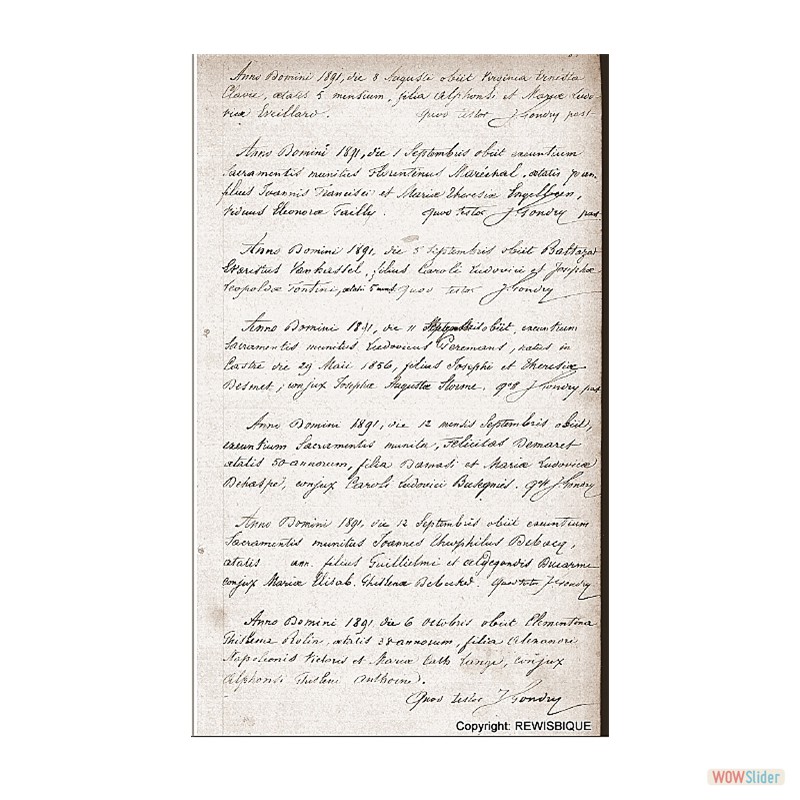 Anno Domini 1891, die 8 Auguste obiit Virginia Ernesta
Clavie, ætatis 5 mensium, filia Alphonsi et Mariæ Ludo-
vicæ Evillard. Quod testor J. Gondry past
Anno Domini 1891, die 1 Septembris obiit exeuntium
Sacramentis munitus Florentinus Maréchal, ætatis
filius Joannis Francisci et Mariæ Theresiæ
viduus Eleonoræ Failly. Quod testor J. Gondry past
Anno Domini 1891, die 5 Septembris obiit Baltazar
Evaristus Vankassel, filius Caroli Ludovici et Josephæ
Leopoldæ Tontini, ætati 5 Quod testor J. Gondry
Anno Domini 1891, die 11 Septembris obiit, exeuntium
Sacramentis munitus Ludovicus Paremans, natus in
Castre die 29 Maii 1856, filius Josephi et Theresiæ
Desmet, conjux Josephæ Augustæ Storme. J. Gondry past
Anno Domini 1891, die 12 mensis Septembris obiit,
exeuntium Sacramentis munita, Felicitas Demaret
ætatis 50 annorum, filia Damasi et Mariæ Ludovicæ
Dehaspe, conjux Caroli Ludovici J. Gondry
Anno Domini 1891, die 12 Septembris obiit exeuntium
Sacramentis munitus Joannes Theophilus Debacq,
ætatis ann. filius Guillielmi et Aldegondis Ducarme
conjux Mariæ Elisab. Ghislenæ Quod testor J. Gondry
Anno Domini 1891 die 6 Octobris obiit Clementina
Ghislena Rolin, ætatis 28 annorum, filia Alexandri
Napoleonis Victoris et Mariæ Cath conjux
Alphonsi Ghisleni Anthoine.
Quod testor J. Gondry
Copyright: REWISBIQUE
WOWSlider